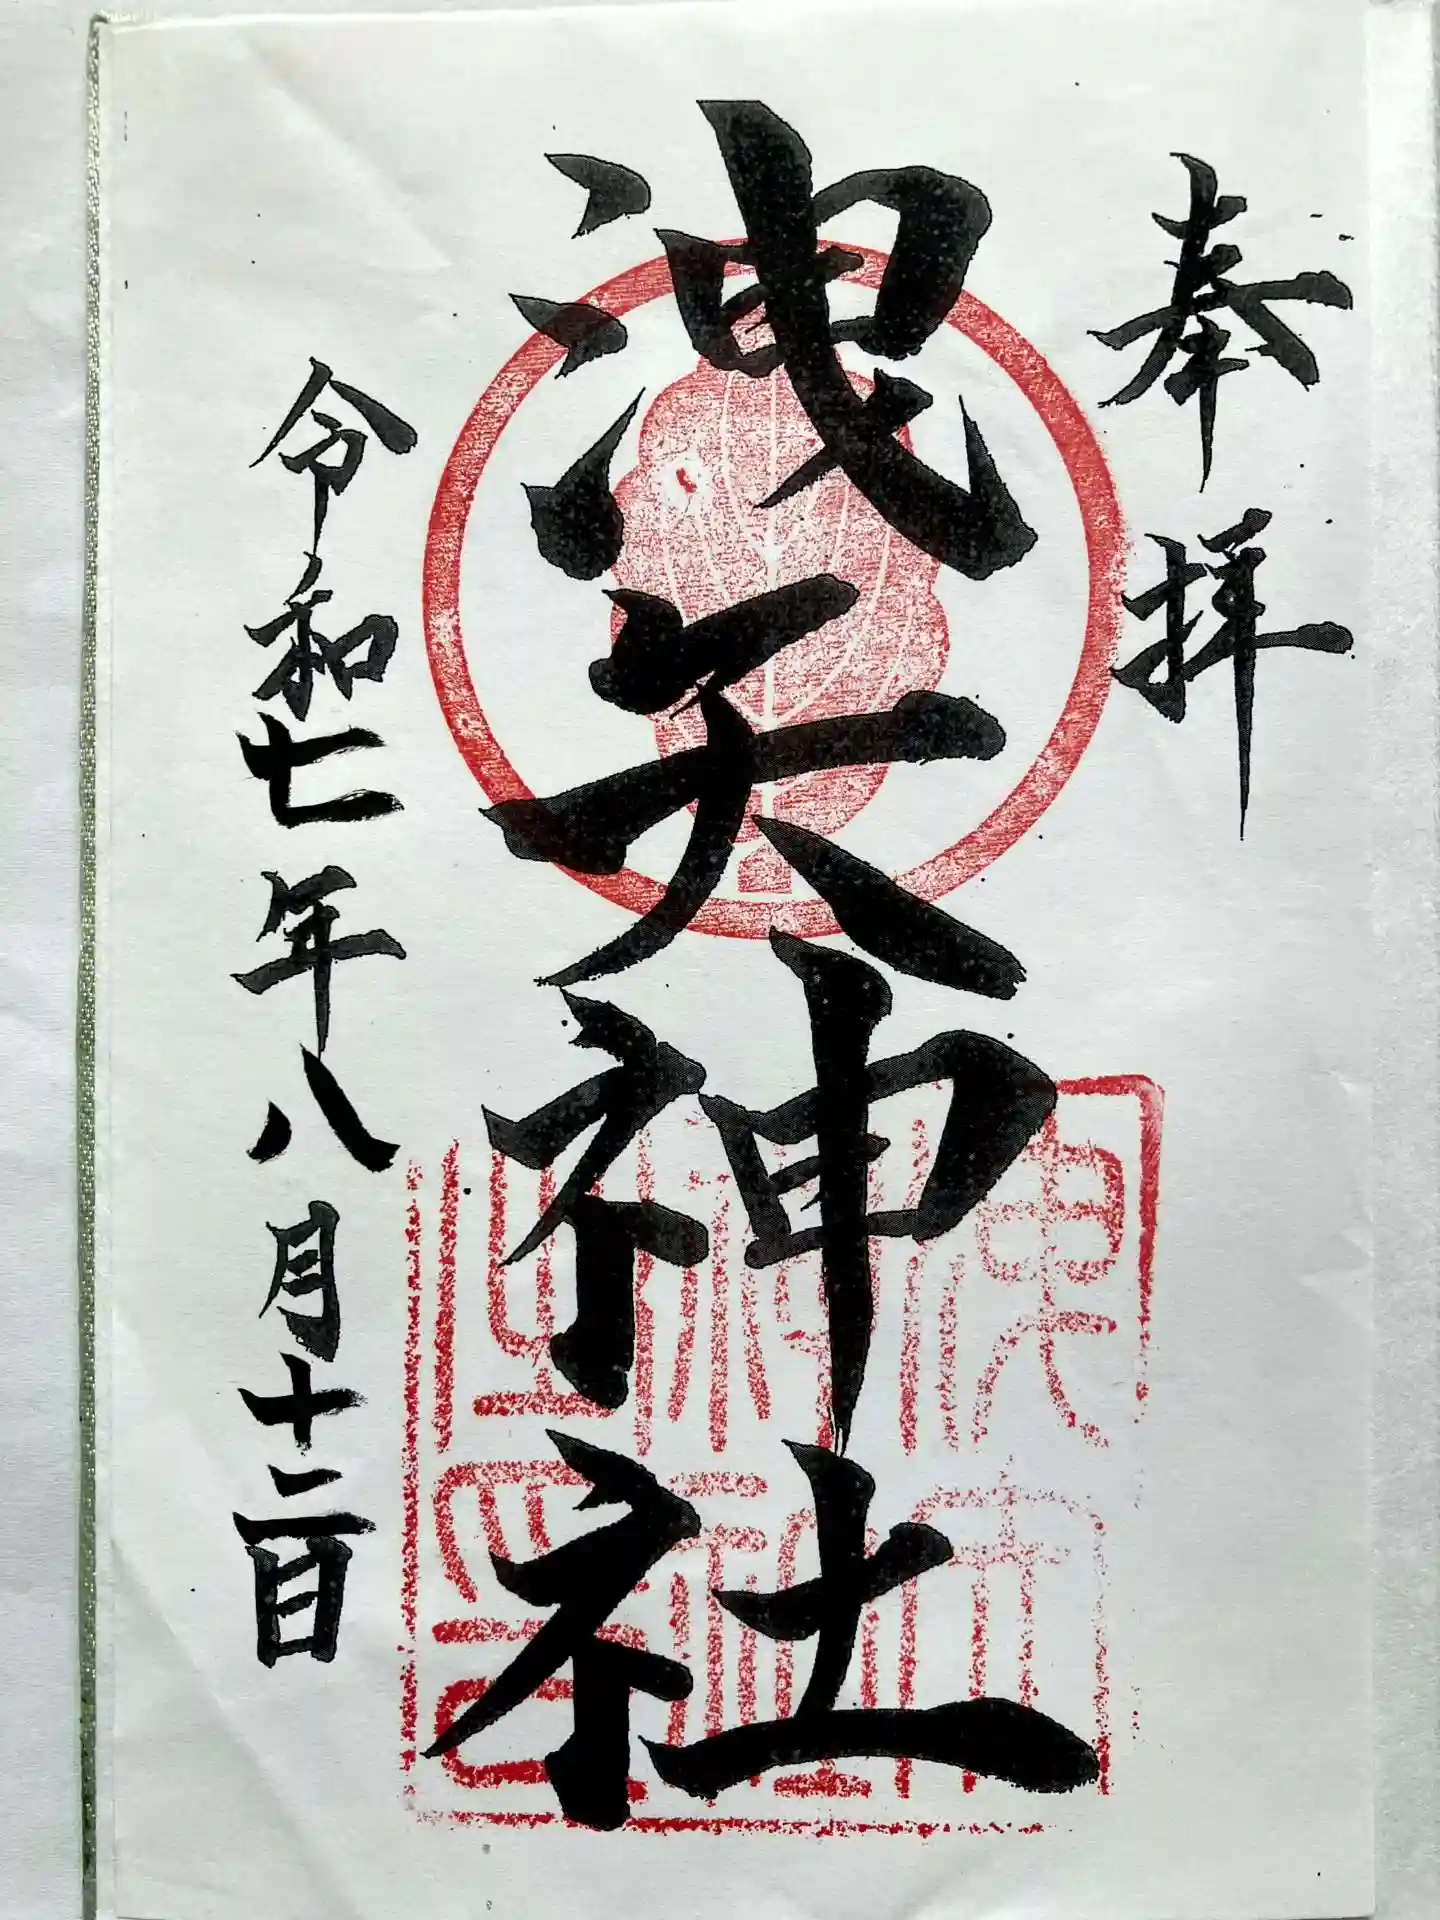 奉拝
洩矢神社
令和七年八月十二日
洩矢
神社
之印